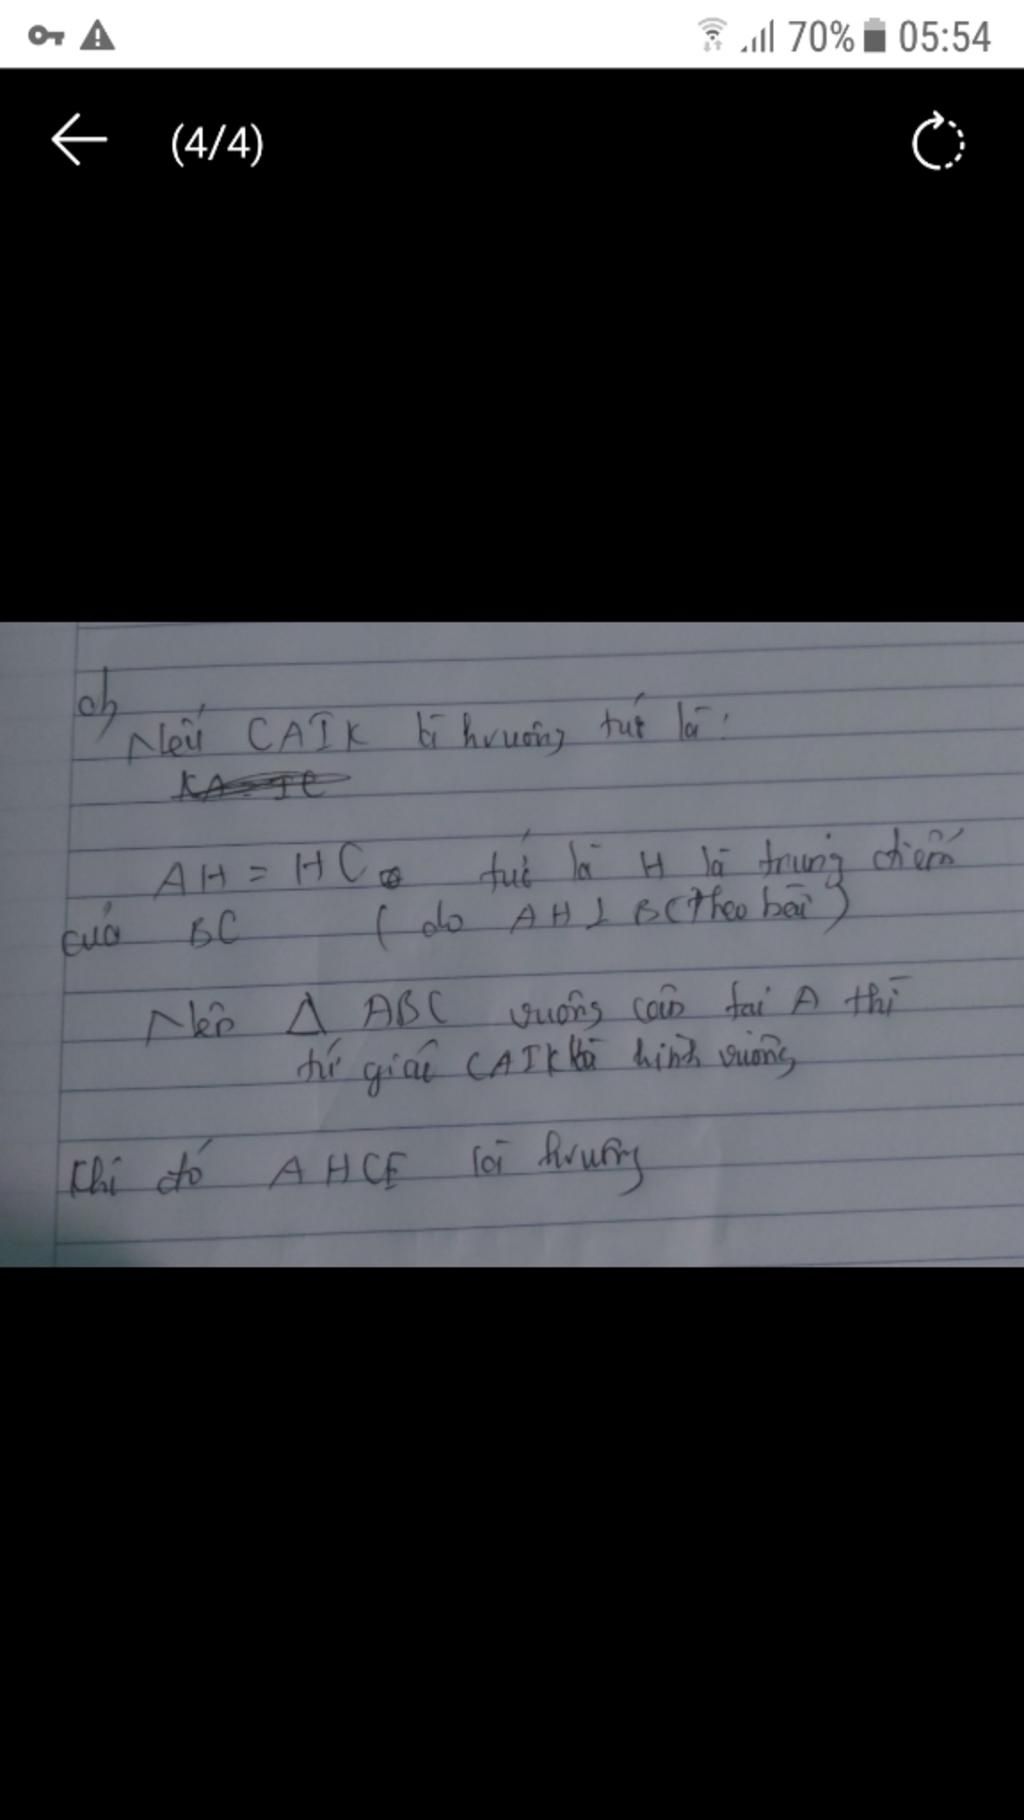 70% 05:54
(4/4)
d,
Nếu CAIK là hvuông tức là:
AH = HC tức là H là trung điểm
của BC (do AH ⊥ BC (theo bài)
Nên Δ ABC vuông cân tại A thì
tứ giác CAIK là hình vuông
Khi đó AHCE là hvuông